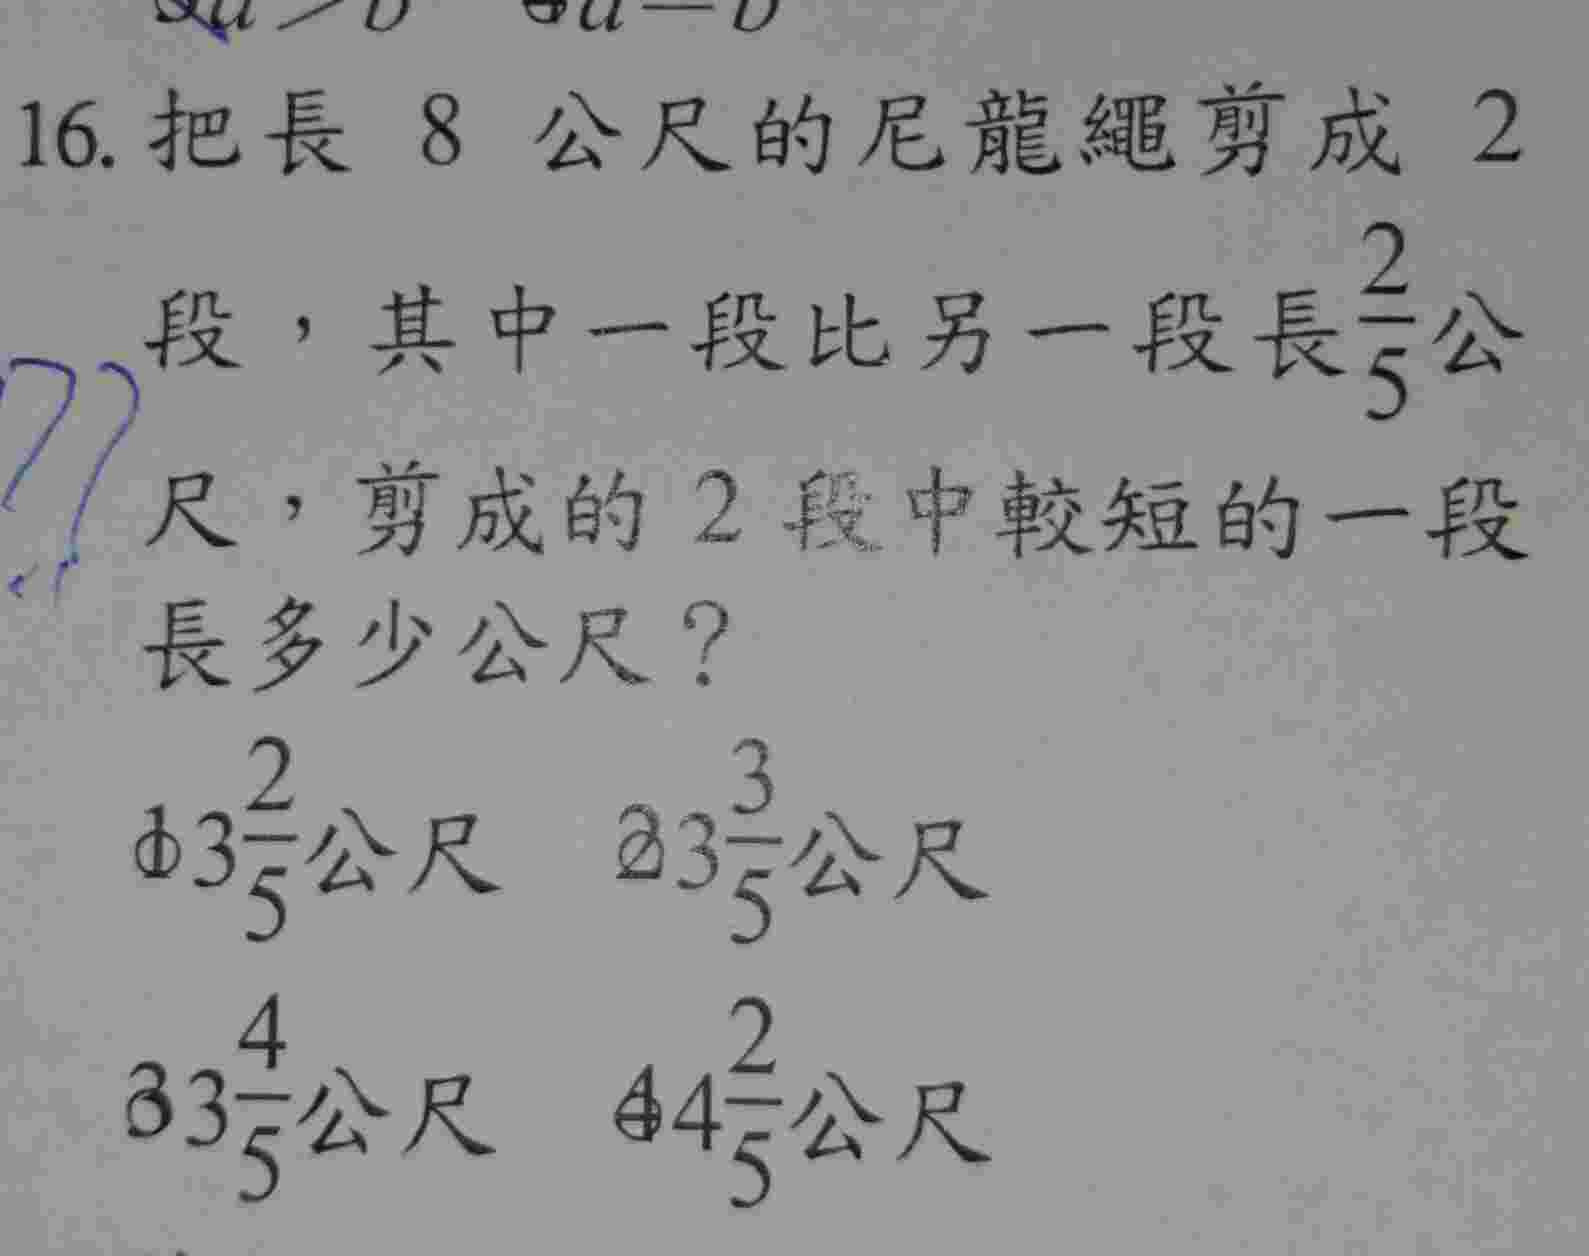 a > b a = b
16. 把長 8 公尺的尼龍繩剪成 2
段，其中一段比另一段長2/5公
??
尺，剪成的 2 段中較短的一段
長多少公尺？
①3 2/5公尺 ②3 3/5公尺
③3 4/5公尺 ④4 2/5公尺